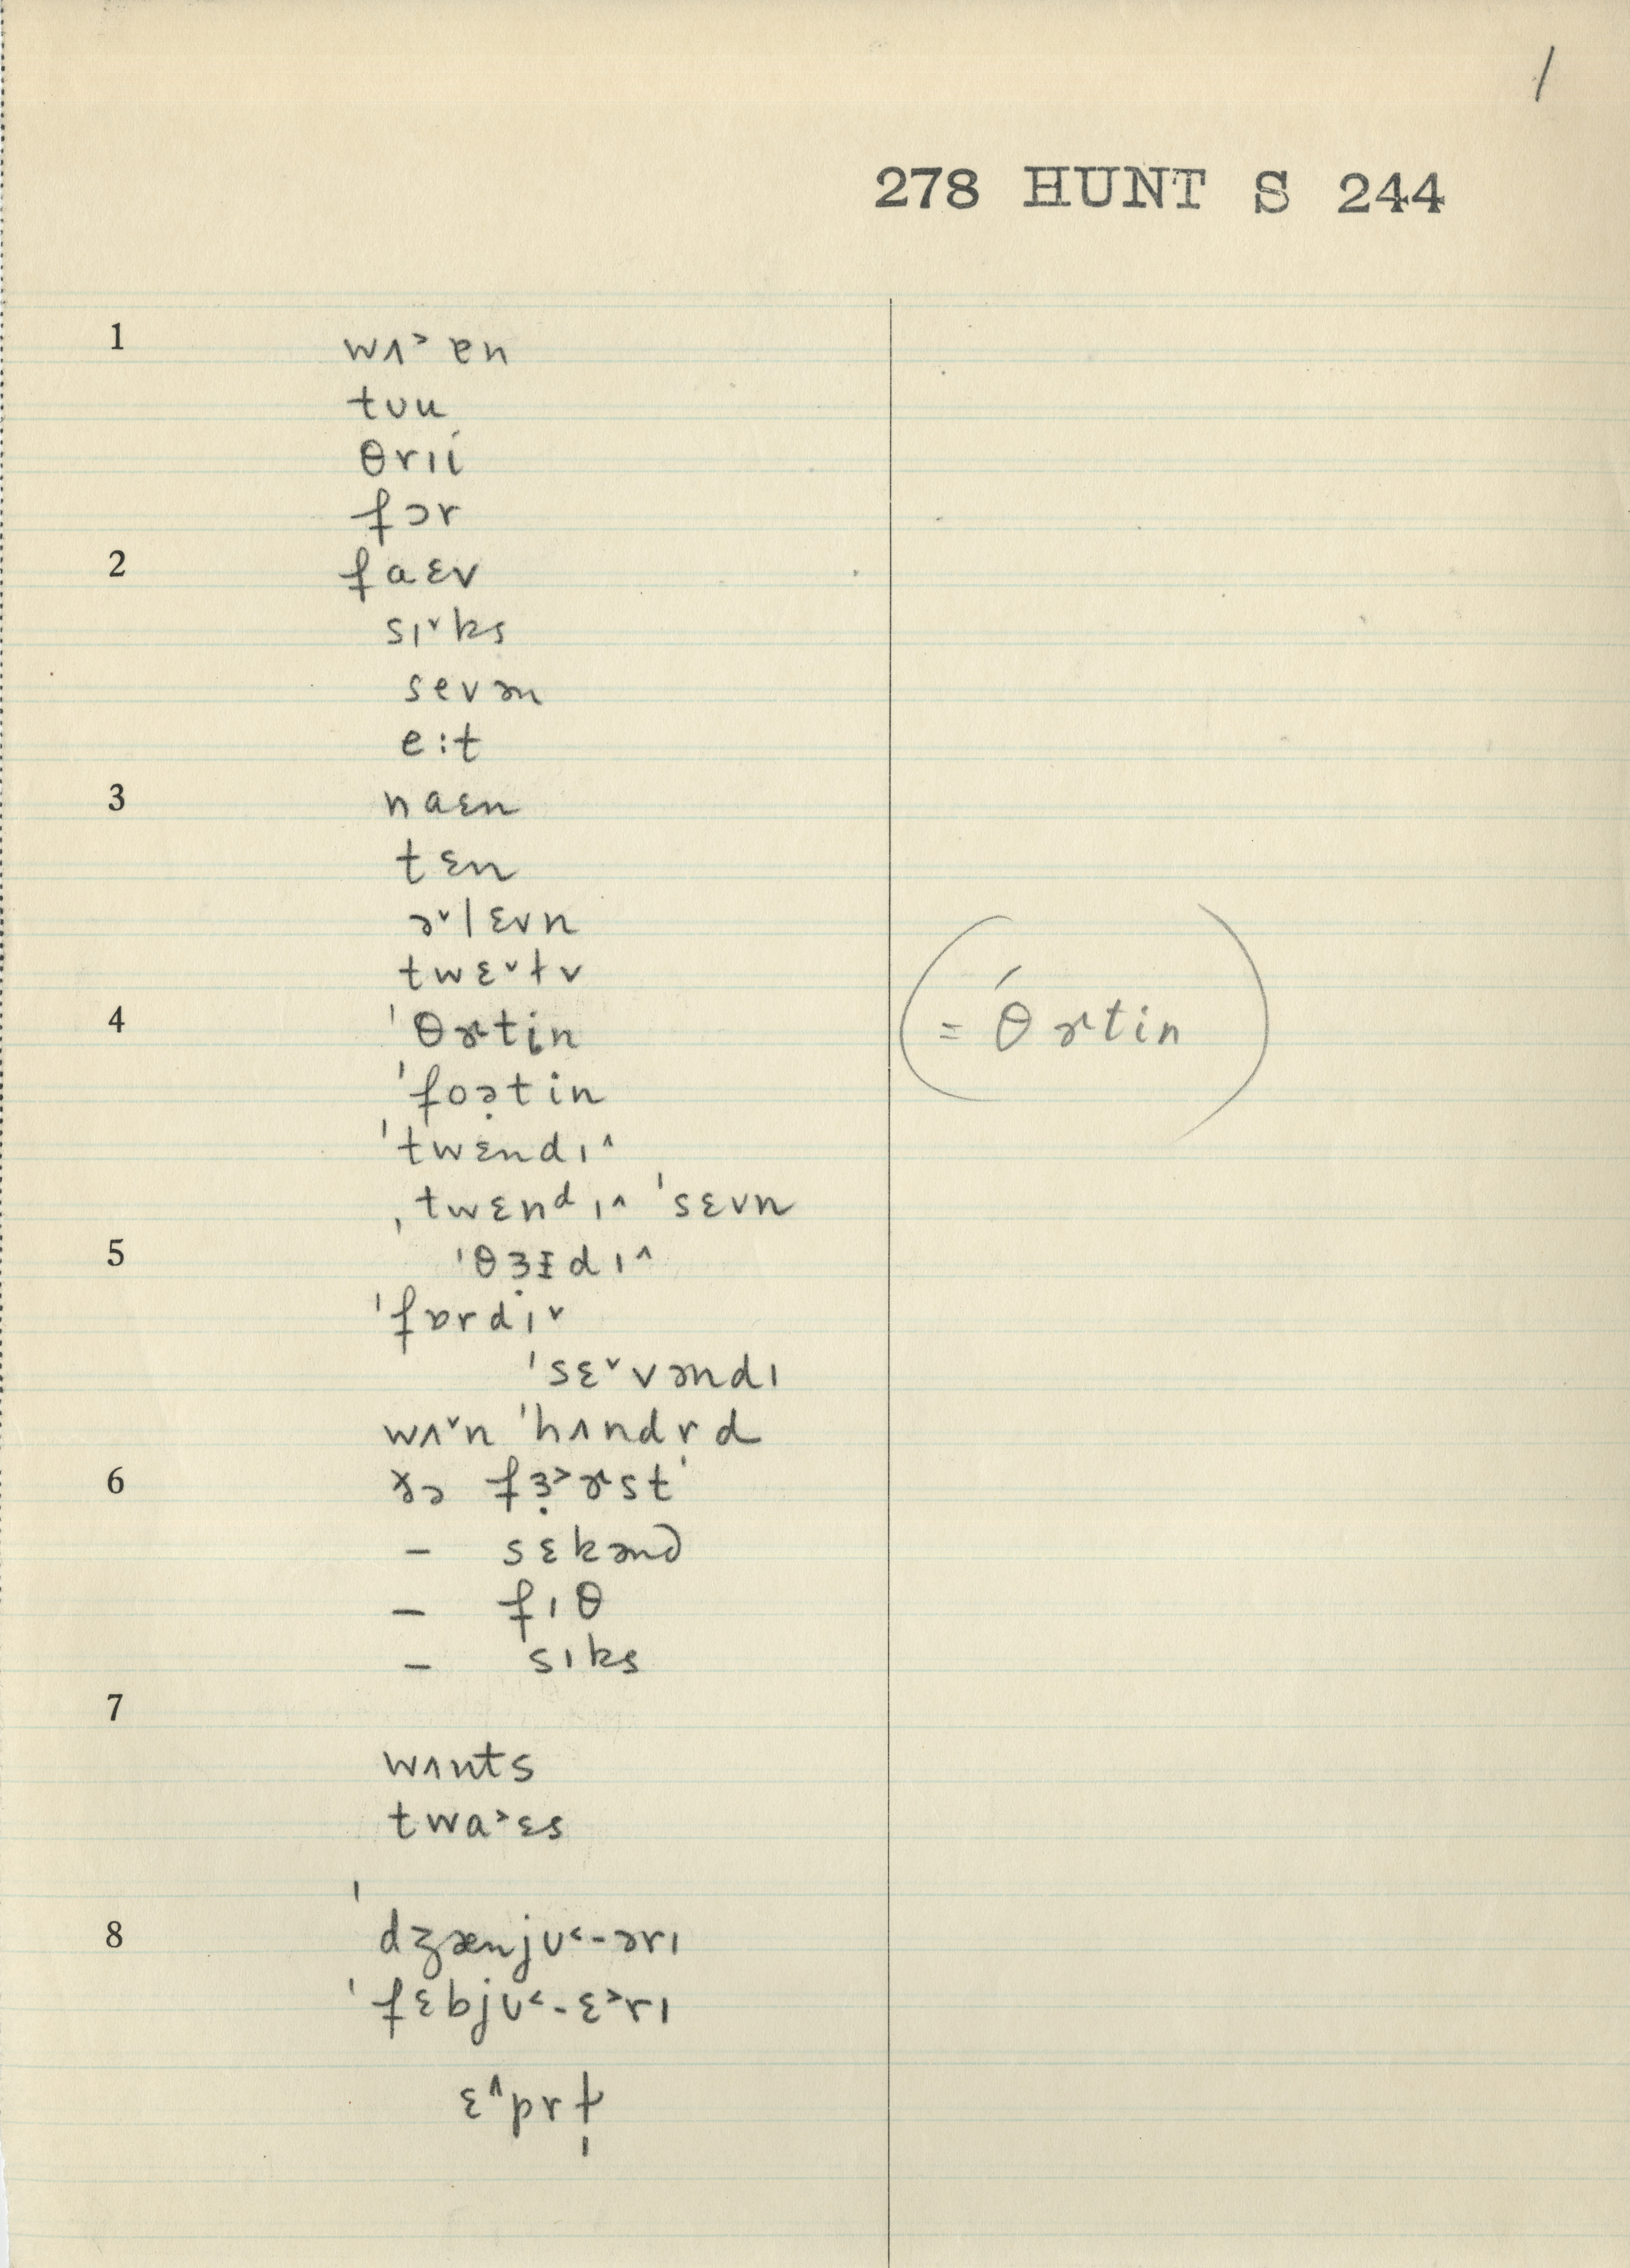 1
278 HUNT S 244
1 wʌ˃ɐn
tʊu
θrɪí
fɔr
2 faɛv
sɪ˅ks
sevən
e:t
3 naɛn
tɛn
ə˅lɛvn
twɛ˅lv
4 ˈθɚtin (= θ́ɚtin)
ˈfoə̣tin
ˈtwɛndɪ˄
ˌtwɛnᵈɪ˄ ˈsɛvn
5 ˈθɜ̣ɪdɪ˄
ˈfɒrdɪ˅
ˈsɛ˅vəndɪ
wʌ˅n ˈhʌndrd
6 ɤə fɜ̣˃ɚst'
– sɛkənd
– fɪθ
– sɪks
7
wʌnts
twa˃ɛs
8 ˈdʒænjʊ˂-ərɪ
ˈfɛbjʊ˂-ɛ˃rɪ